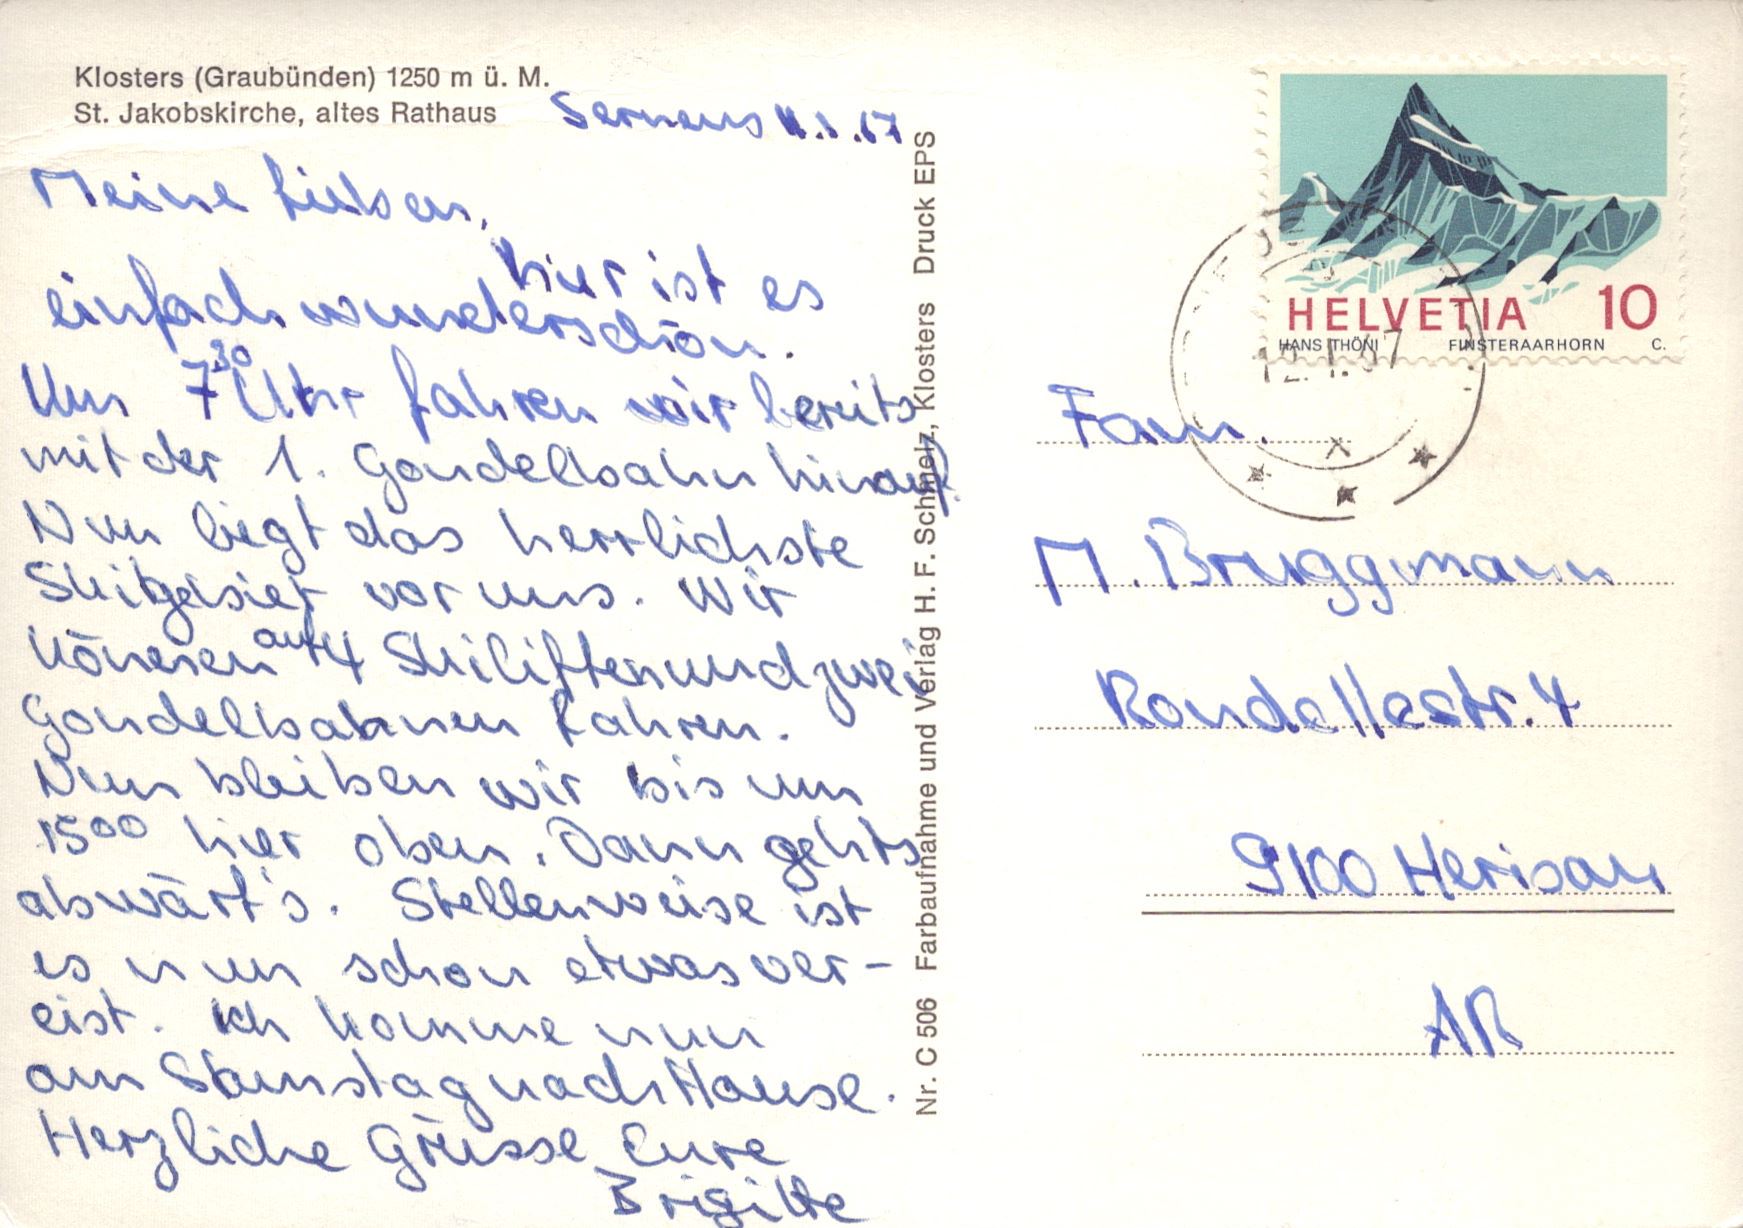 Klosters (Graubünden) 1250 m ü. M.
St. Jakobskirche, altes Rathaus
Serneus 11.1.67
Meine Lieben,
hier ist es
einfach wunderschön.
Um 7³⁰ Uhr fahren wir bereits
mit der 1. Gondelbahn hinauf.
Nun liegt das herrlichste
Skigebiet vor uns. Wir
können auf 4 Skiliften und zwei
Gondelbahnen fahren.
Nun bleiben wir bis um
15⁰⁰ hier oben. Dann gehts
abwärt's. Stellenweise ist
es nun schon etwas ver-
eist. Ich komme nun
am Samstag nach Hause.
Herzliche Grüsse Eure
Brigitte
Nr. C 506 Farbaufnahme und Verlag H. F. Schmelz, Klosters Druck EPS
HELVETIA 10
HANS THÖNI FINSTERAARHORN C.
12.1.67
Fam.
M. Bruggmann
Rondellestr. 4
9100 Herisau
AR